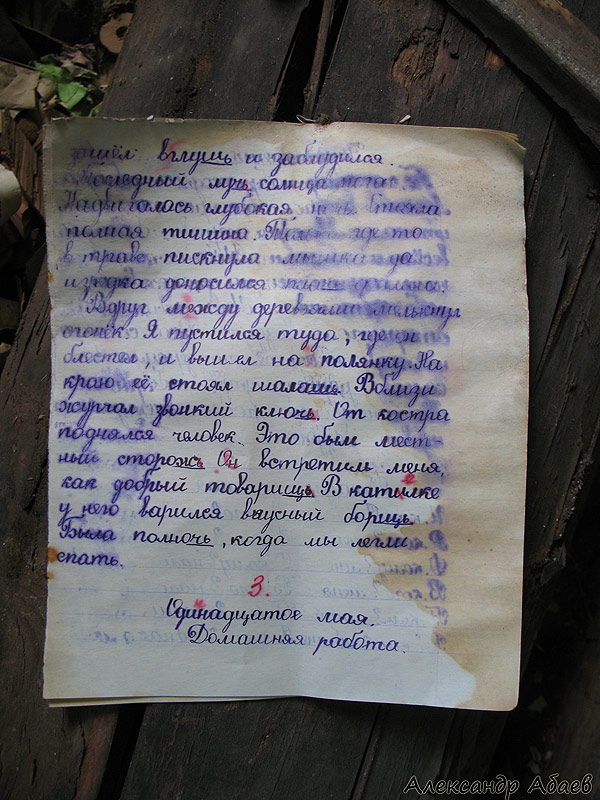 зашёл вглушь и заблудился.
Последний лучь солнца погас.
Надвигалась глубокая ночь. Стояла
полная тишина. Только где-то
в траве пискнула мышка да
изредка доносился
Вдруг между деревьями мелькнул
огонёк. Я пустился туда, где он
блестел, и вышел на полянку. На
краю её стоял шалашь. Вблизи
журчал звонкий ключь. От костра
поднялся человек. Это был мест-
ный сторожь. Он встретил меня,
как добрый товарищь. В катилке
е
у него варился вкусный борщь.
Была полночь, когда мы легли
спать.
3.
н
Одинадцатое мая.
Домашняя работа.
Александр Абаев